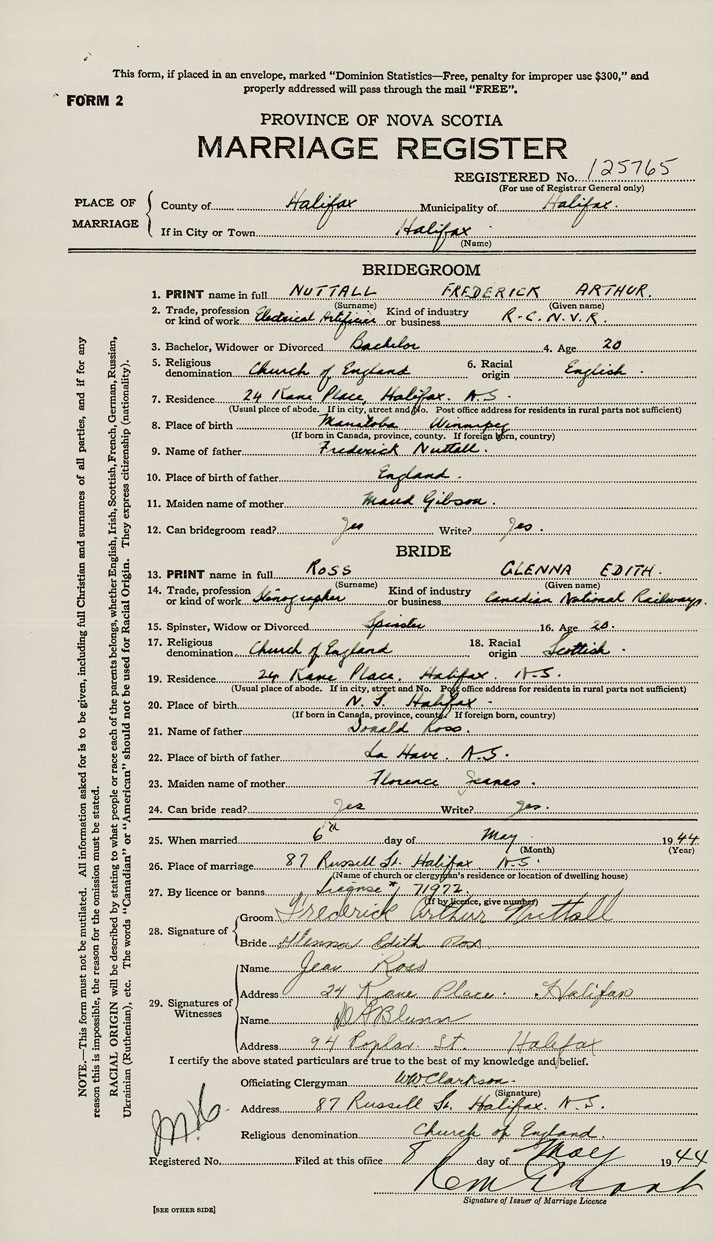 This form, if placed in an envelope, marked "Dominion Statistics—Free, penalty for improper use $300," and
properly addressed will pass through the mail "FREE".
FORM 2
PROVINCE OF NOVA SCOTIA
MARRIAGE REGISTER
REGISTERED No. 125765
(For use of Registrar General only)
PLACE OF MARRIAGE
County of Halifax Municipality of Halifax.
If in City or Town Halifax
(Name)
BRIDEGROOM
1. PRINT name in full NUTTALL FREDERICK ARTHUR.
(Surname) (Given name)
2. Trade, profession or kind of work Electrical Artificier Kind of industry or business R.C.N.V.R.
3. Bachelor, Widower or Divorced Bachelor 4. Age 20
5. Religious denomination Church of England 6. Racial origin English.
7. Residence 24 Kane Place, Halifax. N.S.
(Usual place of abode. If in city, street and No. Post office address for residents in rural parts not sufficient)
8. Place of birth Manitoba Winnipeg
(If born in Canada, province, county. If foreign born, country)
9. Name of father Frederick Nuttall.
10. Place of birth of father England.
11. Maiden name of mother Maud Gibson.
12. Can bridegroom read? Yes Write? Yes.
BRIDE
13. PRINT name in full ROSS GLENNA EDITH.
(Surname) (Given name)
14. Trade, profession or kind of work Stenographer Kind of industry or business Canadian National Railways.
15. Spinster, Widow or Divorced Spinster 16. Age 20.
17. Religious denomination Church of England 18. Racial origin Scottish.
19. Residence 24 Kane Place, Halifax. N.S.
(Usual place of abode. If in city, street and No. Post office address for residents in rural parts not sufficient)
20. Place of birth N.S. Halifax.
(If born in Canada, province, county. If foreign born, country)
21. Name of father Donald Ross.
22. Place of birth of father La Have. N.S.
23. Maiden name of mother Florence
24. Can bride read? Yes Write? Yes.
25. When married 6th day of May 1944
(Month) (Year)
26. Place of marriage 87 Russell St. Halifax. N.S.
(Name of church or clergyman's residence or location of dwelling house)
27. By licence or banns License # 71972
(If by licence, give number)
28. Signature of
Groom Frederick Arthur Nuttall
Bride Glenna Edith Ross
29. Signatures of Witnesses
Name Jean Ross
Address 24 Kane Place. Halifax
Name
Address 94 Poplar St Halifax
I certify the above stated particulars are true to the best of my knowledge and belief.
Officiating Clergyman WWClarkson.
(Signature)
Address 87 Russell St. Halifax. N.S.
Religious denomination Church of England.
Registered No. Filed at this office 8 day of May 1944
Signature of Issuer of Marriage Licence
[SEE OTHER SIDE]
NOTE.—This form must not be mutilated. All information asked for is to be given, including full Christian and surnames of all parties, and if for any
reason this is impossible, the reason for the omission must be stated.
RACIAL ORIGIN will be described by stating to what people or race each of the parents belongs, whether English, Irish, Scottish, French, German, Russian,
Ukrainian (Ruthenian), etc. The words "Canadian" or "American" should not be used for Racial Origin. They express citizenship (nationality).